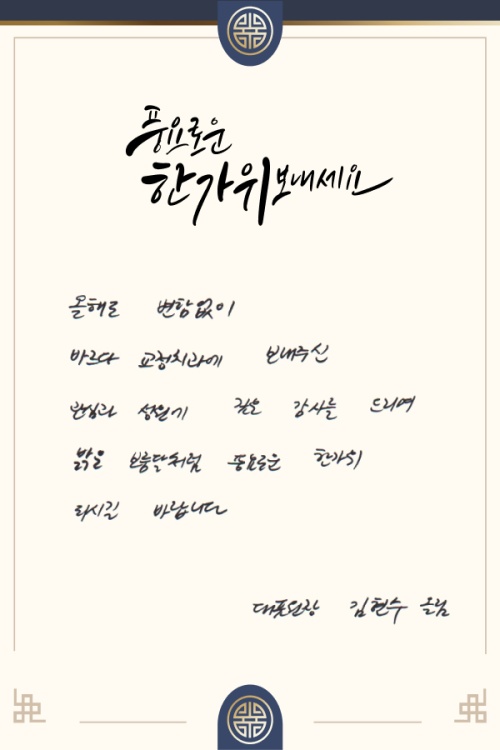 풍요로운
한가위 보내세요
올해도 변함없이
바르다 교정치과에 보내주신
관심과 성원에 깊은 감사를 드리며
밝은 보름달처럼 풍요로운 한가위
되시길 바랍니다
대표원장 김현수 올림